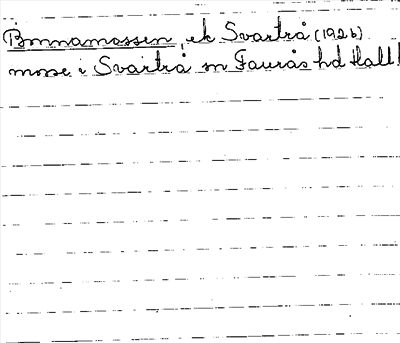 Bonnamossen, ek Svartrå (192b)
mosse i Svartrå sn Faurås hd Hall!